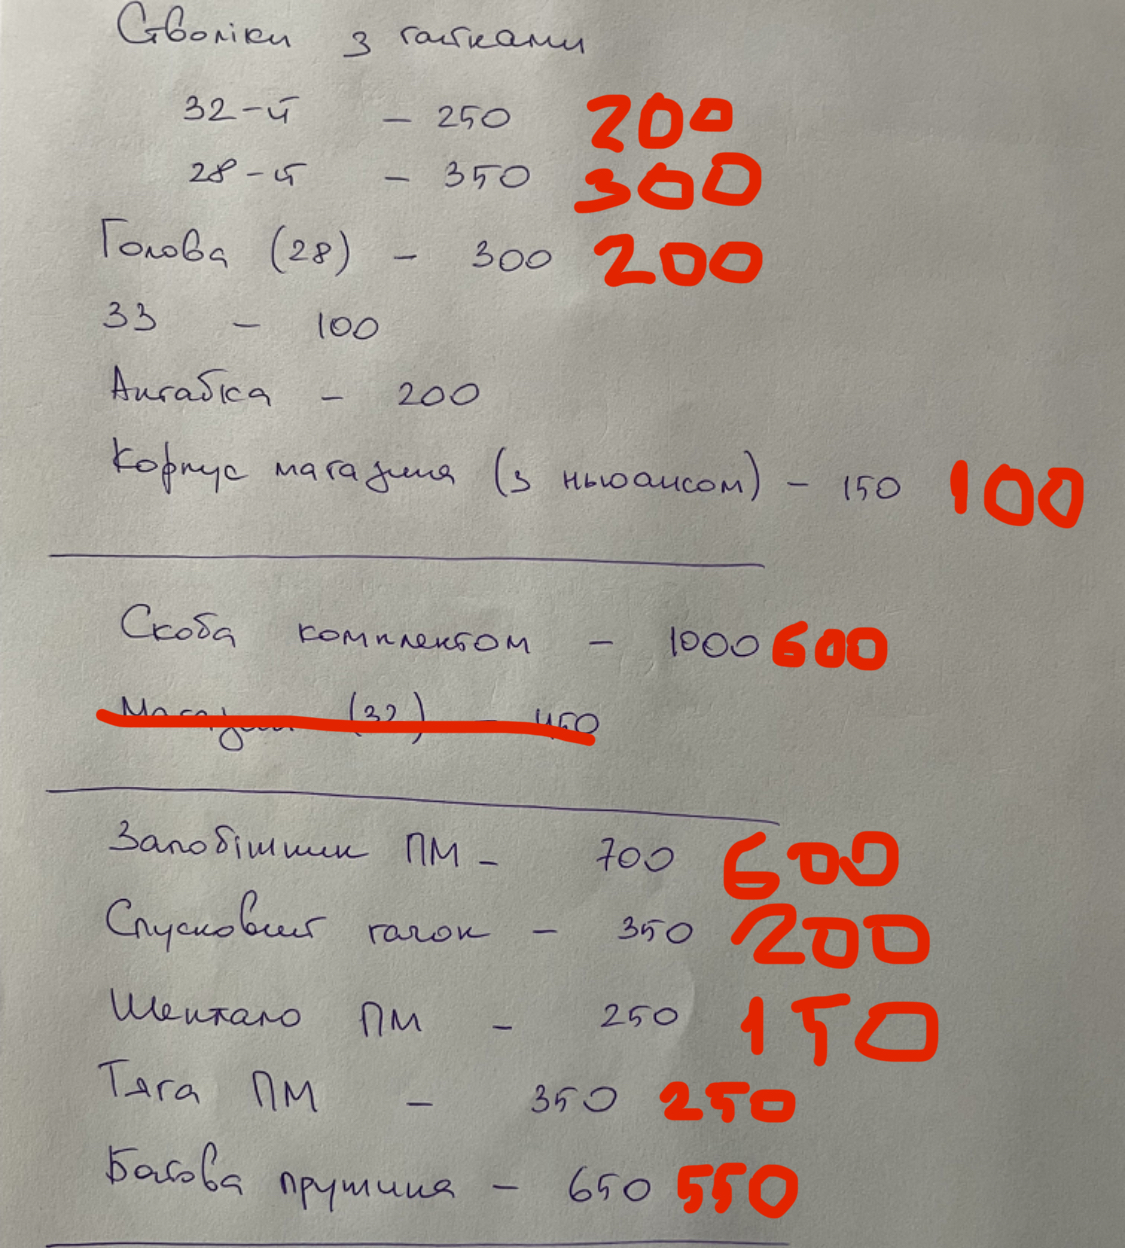 Стволіки з гайками
32-й - 250 200
28-й - 350 300
Голова (28) - 300 200
ЗЗ - 100
Антабка - 200
Корпус магазина (з ньюансом) - 150 100
Скоба комплектом - 1000 600
Магазин (32) - 450
Запобіжник ПМ - 700 600
Спусковий гачок - 350 200
Шептало ПМ - 250 150
Тяга ПМ - 350 250
Бойова пружина - 650 550